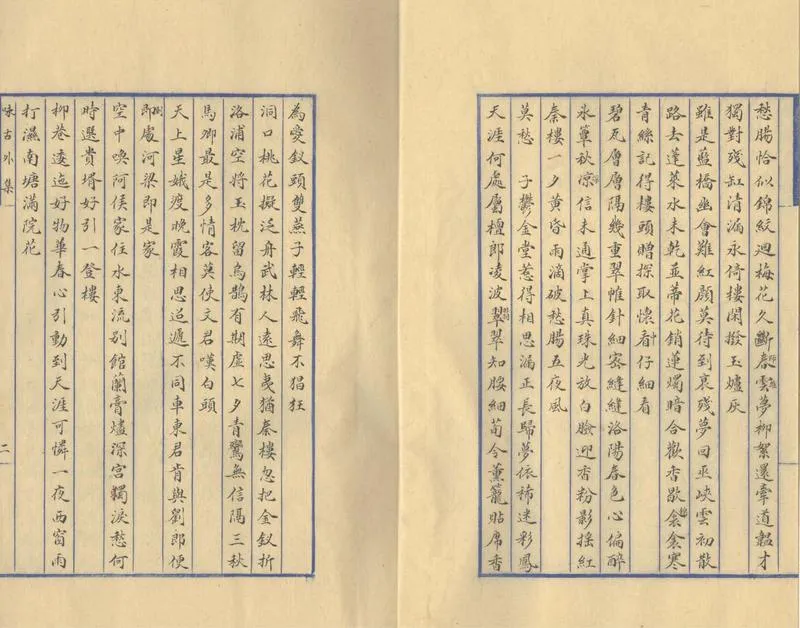 愁腸恰似錦紋迴梅花久斷春雲夢柳絮還牽道韞才
獨對殘缸清漏永倚樓閑撥玉爐灰
雖是藍橋幽會難紅顏莫待到衰殘夢回巫峽雲初散
路去蓬萊水未乾並蒂花銷蓮燭暗合歡香歇衾寒
青絲記得樓頭贈探取懷看仔細看
碧瓦層層隔幾重翠帷針細密縫縫洛陽春色心偏醉
氷簟秋凉信未通掌上真珠光放白臉迎香粉影搖紅
秦樓一夕黄昏雨滴破愁腸五夜風
莫愁 子鬱金堂惹得相思漏正長歸夢依稀迷彩鳳
天涯何處屬檀郎凌波翠翠知腰細荀令薰籠貼席香
為愛釵頭雙燕子輕輕飛舞不猖狂
洞口桃花擬泛舟武林人遠思夷猶秦樓忽把金釵折
洛浦空將玉枕留烏鵲有期虛七夕青鸞無信隔三秋
馬卿最是多情客莫使文君嘆白頭
天上星娥渡晚霞相思迢遞不同車東君肯與劉郎便
即處河梁即是家
空中喚阿侯家住水東流別館蘭膏燼深宮獨淚愁何
時選貴壻好引一登樓
柳巷逶迤好物華春心引動到天涯可憐一夜西窗雨
打濕南塘滿院花
味古外集
二